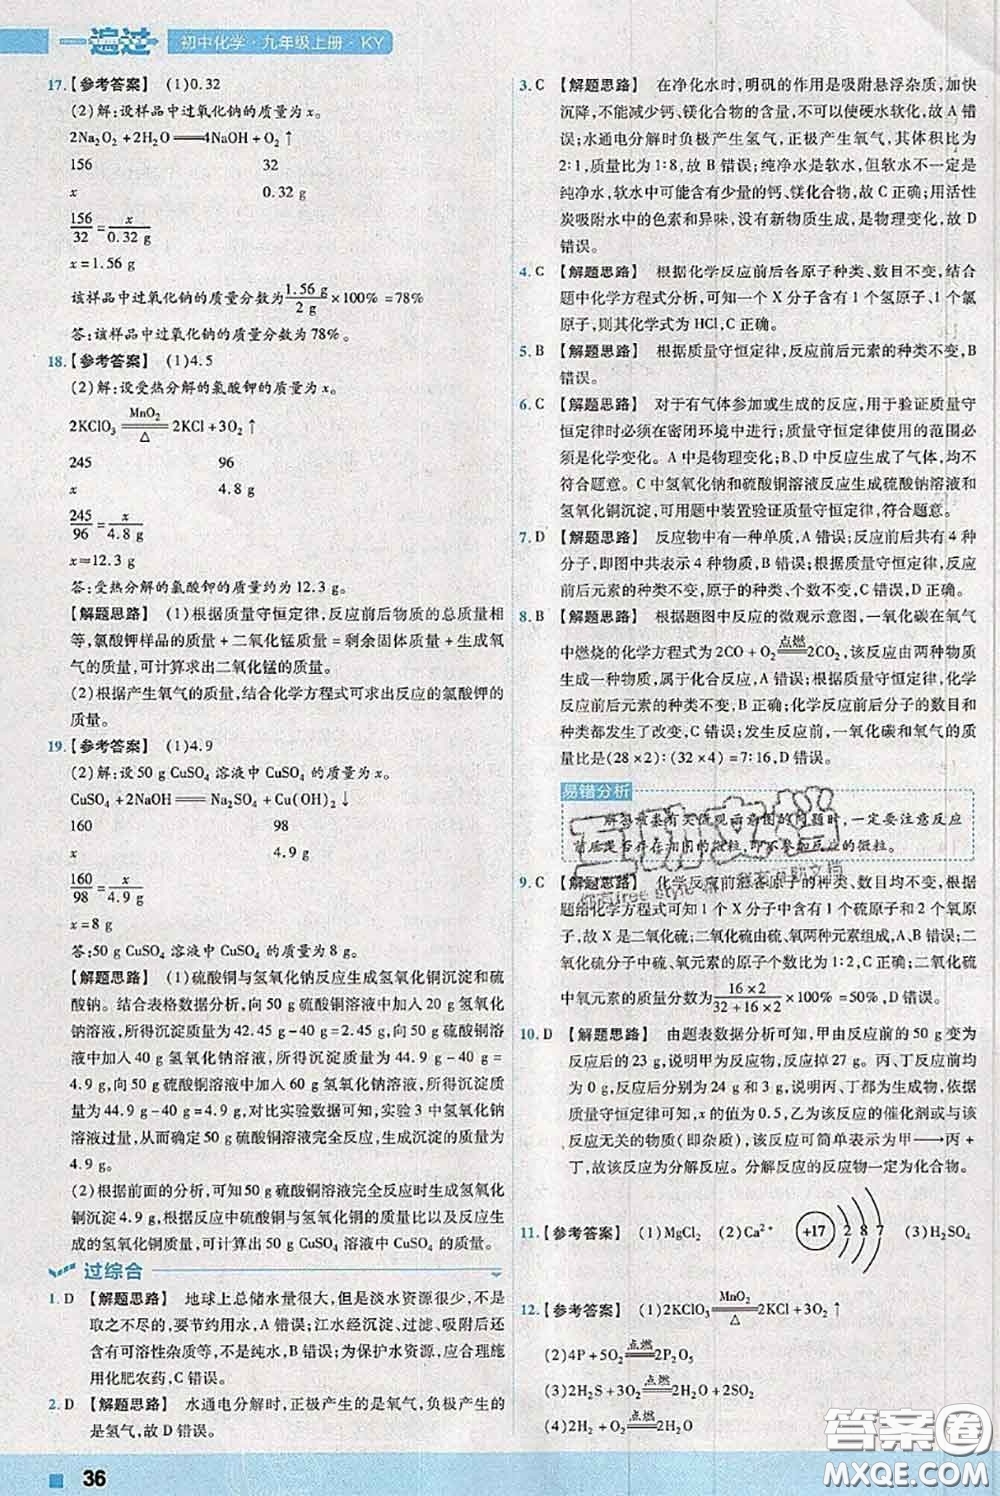 一遍过 初中化学·九年级上册·KY
17.【参考答案】 (1)0.32
(2)解:设样品中过氧化钠的质量为x。
2Na₂O₂+2H₂O══4NaOH+O₂↑
156 32
x 0.32 g
156/32=x/0.32 g
x=1.56 g
该样品中过氧化钠的质量分数为1.56 g/2 g×100%=78%
答:该样品中过氧化钠的质量分数为78%。
18.【参考答案】 (1)4.5
(2)解:设受热分解的氯酸钾的质量为x。
2KClO₃ MnO₂══△ 2KCl+3O₂↑
245 96
x 4.8 g
245/96=x/4.8 g
x=12.3 g
答:受热分解的氯酸钾的质量约为12.3 g。
【解题思路】 (1)根据质量守恒定律,反应前后物质的总质量相
等,氯酸钾样品的质量+二氧化锰质量=剩余固体质量+生成氧
气的质量,可计算求出二氧化锰的质量。
(2)根据产生氧气的质量,结合化学方程式可求出反应的氯酸钾的
质量。
19.【参考答案】 (1)4.9
(2)解:设50 g CuSO₄ 溶液中 CuSO₄ 的质量为x。
CuSO₄+2NaOH══Na₂SO₄+Cu(OH)₂↓
160 98
x 4.9 g
160/98=x/4.9 g
x=8 g
答:50 g CuSO₄ 溶液中 CuSO₄ 的质量为8 g。
【解题思路】 (1)硫酸铜与氢氧化钠反应生成氢氧化铜沉淀和硫
酸钠。结合表格数据分析,向50 g硫酸铜溶液中加入20 g氢氧化
钠溶液,所得沉淀质量为42.45 g-40 g=2.45 g,向50 g硫酸铜
溶液中加入40 g氢氧化钠溶液,所得沉淀质量为44.9 g-40 g=
4.9 g,向50 g硫酸铜溶液中加入60 g氢氧化钠溶液,所得沉淀质
量为44.9 g-40 g=4.9 g,对比实验数据可知,实验3中氢氧化钠
溶液过量,从而确定50 g硫酸铜溶液完全反应,生成沉淀的质量为
4.9 g。
(2)根据前面的分析,可知50 g硫酸铜溶液完全反应时生成氢氧化
铜沉淀4.9 g,根据反应中硫酸铜与氢氧化铜的质量比以及反应生
成的氢氧化铜质量,可计算出50 g CuSO₄ 溶液中 CuSO₄ 的质量。
过综合
1. D 【解题思路】 地球上总储水量很大,但是淡水资源很少,不是
取之不尽的,要节约用水,A错误;江水经沉淀、过滤、吸附后还含
有可溶性杂质等,不是纯水,B错误;为保护水资源,应合理
施用化肥农药,C错误。
2. D 【解题思路】 水通电分解时,正极产生的是氧气,负极产生的
是氢气,故D错误。
3. C 【解题思路】 在净化水时,明矾的作用是吸附悬浮杂质,加快
沉降,不能减少钙、镁化合物的含量,不可以使硬水软化,故A错
误;水通电分解时负极产生氢气,正极产生氧气,其体积比为
2:1,质量比为1:8,故B错误;纯净水是软水,但软水不一定是
纯净水,软水中可能含有少量的钙、镁化合物,故C正确;用活性
炭吸附水中的色素和异味,没有新物质生成,是物理变化,故D
错误。
4. C 【解题思路】 根据化学反应前后各原子种类、数目不变,结合
题中化学方程式分析,可知一个X分子含有1个氢原子、1个氯
原子,则其化学式为HCl,C正确。
5. B 【解题思路】 根据质量守恒定律,反应前后元素的种类不变,B
错误。
6. C 【解题思路】 对于有气体参加或生成的反应,用于验证质量守
恒定律时必须在密闭环境中进行。质量守恒定律使用的范围必
须是化学变化。A中是物理变化;B、D中反应生成了气体,均不
符合题意。C中氢氧化钠和硫酸铜溶液反应生成硫酸钠溶液和
氢氧化铜沉淀,可用题中装置验证质量守恒定律,符合题意。
7. D 【解题思路】 反应物中有一种单质,A错误;反应前后共有4种
分子,即图中共表示4种物质,B错误;根据质量守恒定律,反应前
后元素的种类不变,原子的种类、个数不变,C错误、D正确。
8. B 【解题思路】 根据题图中反应的微观示意图,一氧化碳在氧气
中燃烧的化学方程式为2CO+O₂ 点燃══ 2CO₂,该反应由两种物质
生成一种物质,属于化合反应,A正确;根据质量守恒定律,化学
反应前后元素的种类不变,B正确;化学反应前后分子的种类
都发生了改变,C错误;发生反应前,一氧化碳和氧气的质量
比为(28×2):(32×4)=7:16,D错误。
易错分析
解答该类有关微观示意图的问题时,一定要注意反应
前后是否存在相同的微粒,即不参加反应的微粒。
9. C 【解题思路】 化学反应前后各原子的种类、数目均不变,根据
题给化学方程式可知1个X分子中含有1个硫原子和2个氧原子,
故X是二氧化硫;二氧化硫由硫、氧两种元素组成,A错误;1个二
氧化硫分子中硫、氧元素的原子个数比为1:2,C正确;二氧化硫
中氧元素的质量分数为16×2/32+16×2×100%=50%,D错误。
10. D 【解题思路】 由题表数据分析可知,甲由反应前的50 g变为
反应后的23 g,说明甲为反应物,反应掉27 g。丙、丁反应前均
为0 g,反应后分别为24 g和3 g,说明丙、丁都为生成物,依据质
量守恒定律可知,x的值为0.5,乙为该反应的催化剂或与该
反应无关的物质(即杂质),该反应可简单表示为甲→丙+
丁,故该反应为分解反应。分解反应的反应物一定为化合物。
11.【参考答案】 (1)MgCl₂ (2)Ca²⁺ +17 2 8 7 (3)H₂SO₄
12.【参考答案】 (1)2KClO₃ MnO₂══△ 2KCl+3O₂↑
(2)4P+5O₂ 点燃══ 2P₂O₅
(3)2H₂S+3O₂ 点燃══ 2H₂O+2SO₂
(4)2H₂+O₂ 点燃══ 2H₂O
36
互助文档
答案圈
MXQE.COM